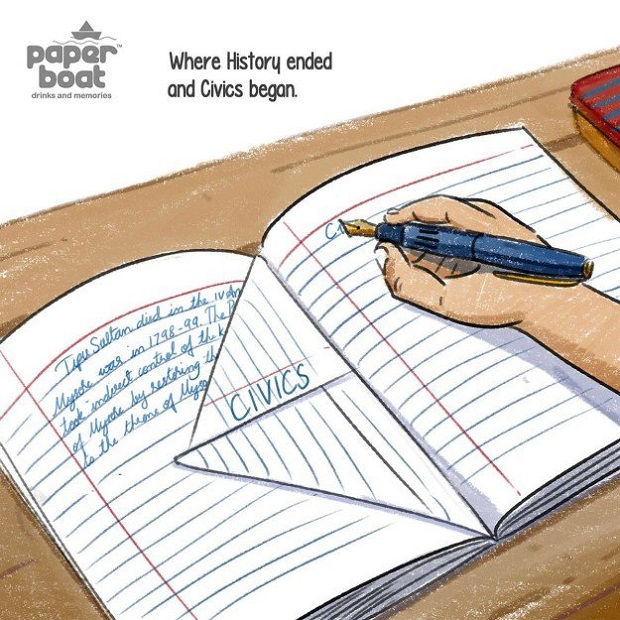 paper
boat
TM
drinks and memories
Where History ended
and Civics began.
Tipu Sultan died in the IV An
Mysore was in 1798-99. The
took indirect control of the
of Mysore by restoring th
to the throne of Myso
CIVICS